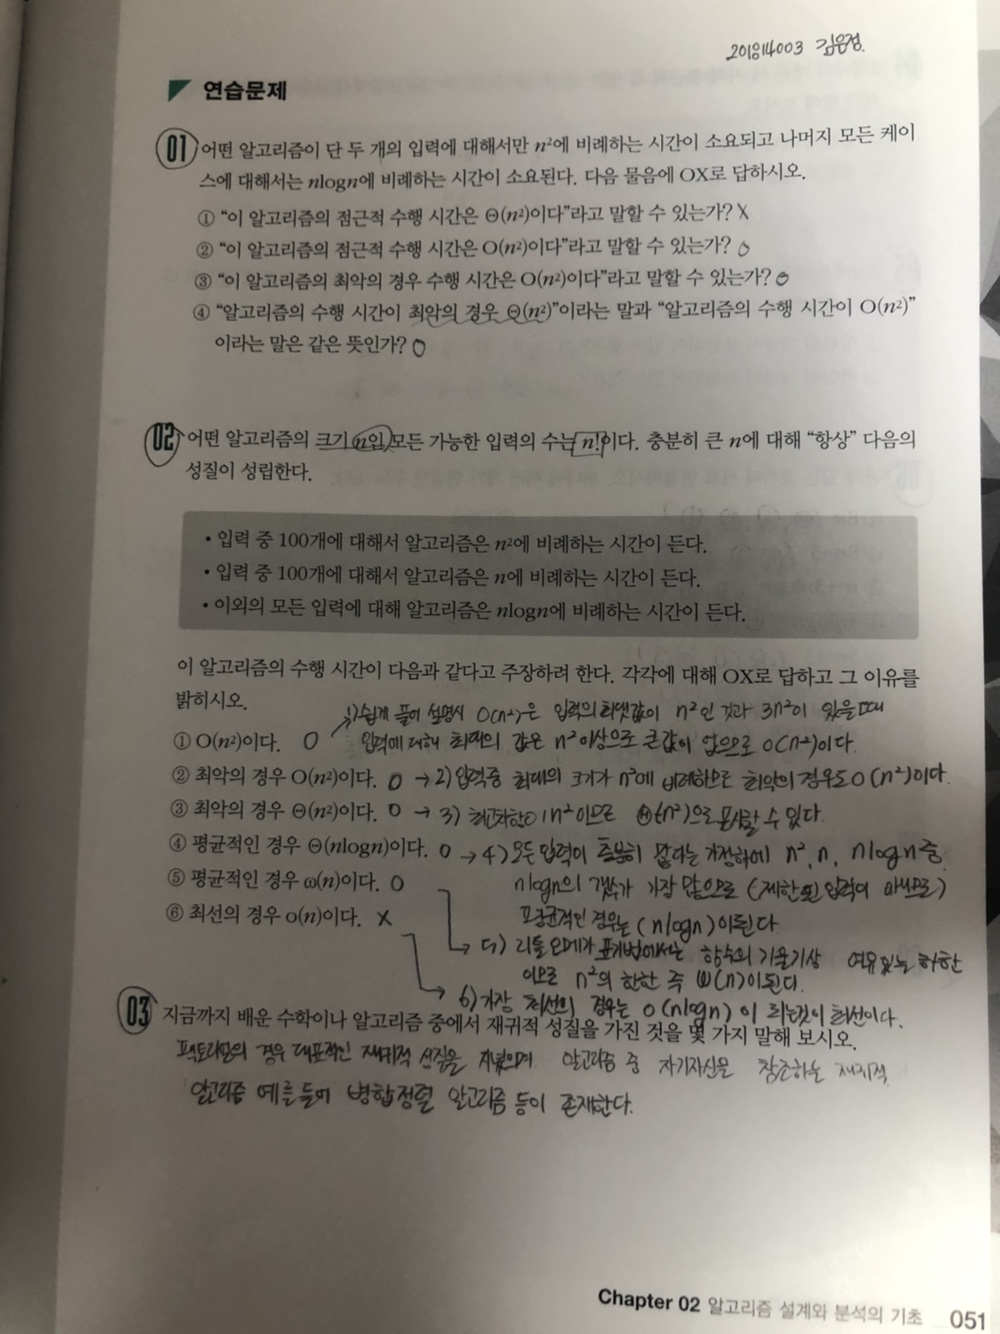 201814003 김은정.
연습문제
01 어떤 알고리즘이 단 두 개의 입력에 대해서만 n²에 비례하는 시간이 소요되고 나머지 모든 케이
스에 대해서는 nlogn에 비례하는 시간이 소요된다. 다음 물음에 OX로 답하시오.
① "이 알고리즘의 점근적 수행 시간은 Θ(n²)이다"라고 말할 수 있는가? X
② "이 알고리즘의 점근적 수행 시간은 O(n²)이다"라고 말할 수 있는가? O
③ "이 알고리즘의 최악의 경우 수행 시간은 O(n²)이다"라고 말할 수 있는가? O
④ "알고리즘의 수행 시간이 최악의 경우 Θ(n²)"이라는 말과 "알고리즘의 수행 시간이 O(n²)"
이라는 말은 같은 뜻인가? O
02 어떤 알고리즘의 크기 n인 모든 가능한 입력의 수는 n!이다. 충분히 큰 n에 대해 "항상" 다음의
성질이 성립한다.
• 입력 중 100개에 대해서 알고리즘은 n²에 비례하는 시간이 든다.
• 입력 중 100개에 대해서 알고리즘은 n에 비례하는 시간이 든다.
• 이외의 모든 입력에 대해 알고리즘은 nlogn에 비례하는 시간이 든다.
이 알고리즘의 수행 시간이 다음과 같다고 주장하려 한다. 각각에 대해 OX로 답하고 그 이유를
밝히시오.
1) 쉽게 풀어 설명시 O(n²)은 입력의 최댓값이 n²인 것과 3n²이 있을때
① O(n²)이다. O 입력에 대해 최대의 값은 n²이상으로 큰값이 없으므로 O(n²)이다.
② 최악의 경우 O(n²)이다. O → 2) 입력중 최대의 크기가 n²에 비례하므로 최악의 경우도 O(n²)이다.
③ 최악의 경우 Θ(n²)이다. O → 3) 최고차항이 n²이므로 Θ(n²)으로 표시할 수 있다.
④ 평균적인 경우 Θ(nlogn)이다. O → 4) 모든 입력이 충분히 많다는 가정하에 n², n, nlogn 중
⑤ 평균적인 경우 ω(n)이다. O nlogn의 갯수가 가장 많으므로 (제한된 입력이 아니므로)
평균적인 경우는 (nlogn)이된다
⑥ 최선의 경우 o(n)이다. X
5) 리틀 오메가 표기법에서는 함수의 기울기상 여유있는 하한
이므로 n²의 하한 즉 ω(n)이된다.
6) 가장 최선의 경우는 O(nlogn)이 되는것이 최선이다.
03 지금까지 배운 수학이나 알고리즘 중에서 재귀적 성질을 가진 것을 몇 가지 말해 보시오.
팩토리얼의 경우 대표적인 재귀적 성질을 알고리즘 중 자기자신을 참조하는 재귀적
알고리즘 예를들어 병합정렬 알고리즘 등이 존재한다.
Chapter 02 알고리즘 설계와 분석의 기초 051